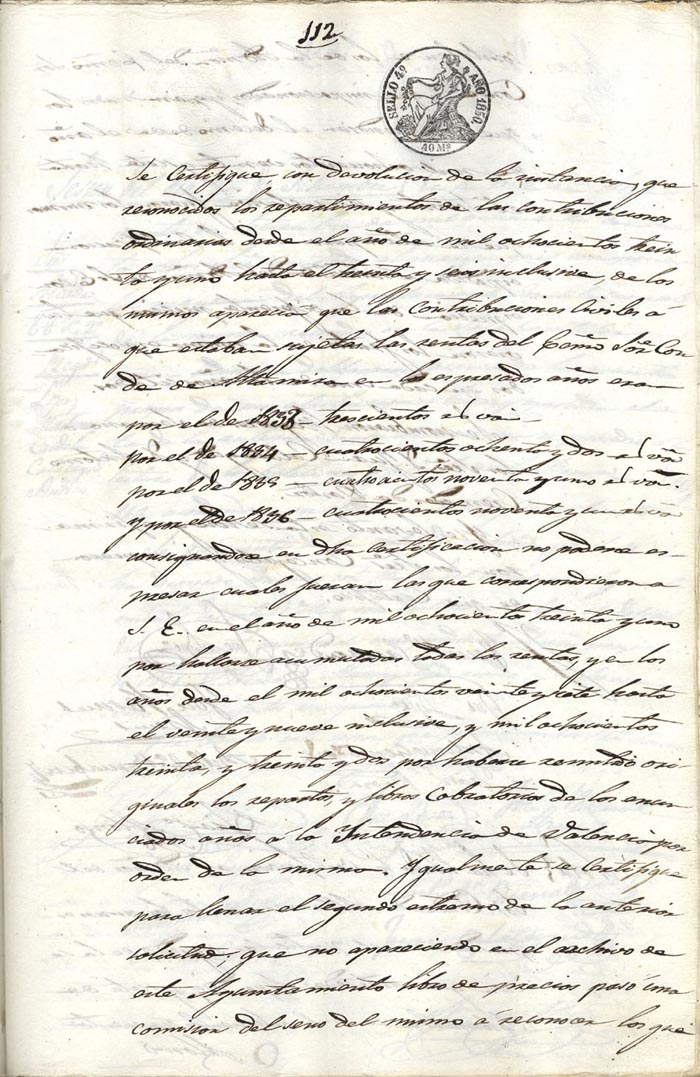 112
SELLO 4º AÑO 1850.
40 Mˢ
Se Certifique con devolucion de la instancia, que
reconocidos los repartimientos de las contribuciones
ordinarias desde el año de mil ochocientos trein
ta y uno hasta el treinta y seis inclusive, de los
mismos aparecia que las Contribuciones Civiles á
que estaban sujetas las rentas del Exmo Sor Con
de de Altamira en los espresados años eran
por el de 1833 – trescientos rˢ vⁿ
por el de 1834 – cuatrocientos ochenta y dos rˢ vⁿ
por el de 1835 – cuatrocientos noventa y uno rˢ vⁿ.
y por el de 1836 – cuatrocientos noventa y un rˢ vⁿ
consignandose en dha Certificacion no poderse es-
presar cuales fueran las que correspondieron a
S. E. en el año de mil ochocientos treinta y uno
por hallarse acumuladas todas las rentas, y en los
años desde el mil ochocientos veinte y siete hasta
el veinte y nueve inclusive, y mil ochocientos
treinta, y treinta y dos por haberse remitido ori-
ginales los repartos, y libros Cobratorios de los enun-
ciados años á la Intendencia de Valencia por
orden de la misma. Ygualmente se Certifique
para llenar el segundo estremo de la anterior
solicitud; que no apareciendo en el archivo de
este Ayuntamiento libro de precios pasó una
comision del seno del mismo á reconocer los que